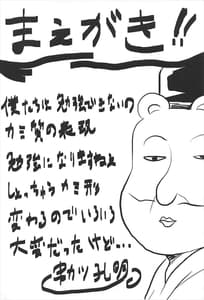 まえがき!!
僕たちに勉強できないの
カミ質の表現
勉強になりますねよ
しょっちゅうカミ形
変わるのでいろいろ
大変だったけど…
串カツ孔明